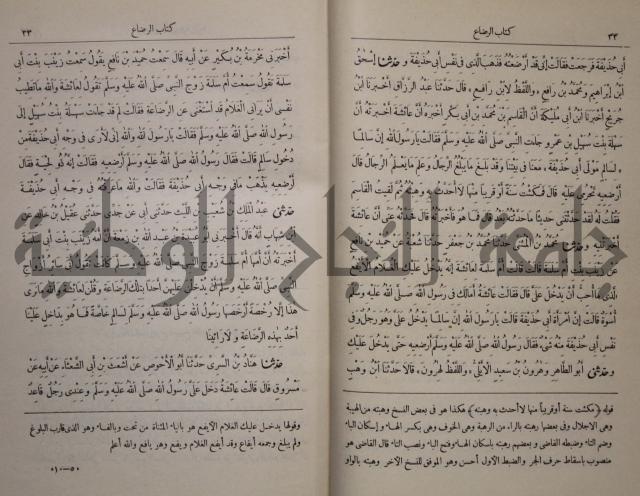 كتاب الرضاع
٣٣
أبى حذيفة فرجعت فقالت إنى قد أرضعته فذهب الذى فى نفس أبى حذيفة و حدثنا إسحق
ابن إبراهيم ومحمد بن رافع «واللفظ لابن رافع» قال حدثنا عبد الرزاق أخبرنا ابن
جريج أخبرنا ابن أبى مليكة أن القاسم بن محمد بن أبى بكر أخبره أن عائشة أخبرته أن
سهلة بنت سهيل بن عمرو جاءت النبى صلى الله عليه وسلم فقالت يارسول الله إن سالما
«لسالم مولى أبى حذيفة» معنا فى بيتنا وقد بلغ ما يبلغ الرجال وعلم ما يعلم الرجال قال
أرضعيه تحرمى عليه قال فمكثت سنة أو قريبا منها لا أحدث به وهبته ثم لقيت القاسم
فقلت له لقد حدثتنى حديثا ما حدثته بعد قال فما هو فأخبرته قال فحدثه عنى أن عائشة
أخبرتنيه و حدثنا محمد بن المثنى حدثنا محمد بن جعفر حدثنا شعبة عن حميد بن نافع
عن زينب بنت أم سلمة قالت قالت أم سلمة لعائشة إنه يدخل عليك الغلام الأيفع
الذى ما أحب أن يدخل على قال فقالت عائشة أمالك فى رسول الله صلى الله عليه وسلم
أسوة قالت إن امرأة أبى حذيفة قالت يارسول الله إن سالما يدخل على وهو رجل وفى
نفس أبى حذيفة منه شىء فقال رسول الله صلى الله عليه وسلم أرضعيه حتى يدخل عليك
و حدثنى أبو الطاهر وهرون بن سعيد الأيلى «واللفظ لهرون» قالا حدثنا ابن وهب
قوله ﴿مكثت سنة أو قريبا منها لا أحدث به وهبته﴾ هكذا هو فى بعض النسخ وهبته من الهيبة
وهى الاجلال وفى بعضها رهبته بالراء من الرهبة وهى الخوف وهى بكسر الهاء وإسكان الباء
وضم التاء وضبطه القاضى وبعضهم رهبته باسكان الهاء وفتح الباء ونصب التاء قال القاضى هو
منصوب باسقاط حرف الجر والضبط الأول أحسن وهو الموفق للنسخ الآخر وهبته بالواو
كتاب الرضاع
٣٣
أخبرنى مخرمة بن بكير عن أبيه قال سمعت حميد بن نافع يقول سمعت زينب بنت أبى
سلمة تقول سمعت أم سلمة زوج النبى صلى الله عليه وسلم تقول لعائشة والله ما تطيب
نفسى أن يرانى الغلام قد استغنى عن الرضاعة فقالت لم قد جاءت سهلة بنت سهيل إلى
رسول الله صلى الله عليه وسلم فقالت يارسول الله والله إنى لأرى فى وجه أبى حذيفة من
دخول سالم قالت فقال رسول الله صلى الله عليه وسلم أرضعيه فقالت إنه ذو لحية فقال
أرضعيه يذهب ما فى وجه أبى حذيفة فقالت والله ما عرفته فى وجه أبى حذيفة
حدثنى عبد الملك بن شعيب بن الليث حدثنى أبى عن جدى حدثنى عقيل بن خالد عن
ابن شهاب أنه قال أخبرنى أبو عبيدة بن عبد الله بن زمعة أن أمه زينب بنت أبى سلمة
أخبرته أن أمها أم سلمة زوج النبى صلى الله عليه وسلم كانت تقول أبى سائر أزواج
النبى صلى الله عليه وسلم أن يدخلن عليهن أحدا بتلك الرضاعة وقلن لعائشة والله ما نرى
هذا إلا رخصة أرخصها رسول الله صلى الله عليه وسلم لسالم خاصة فما هو بداخل علينا
أحد بهذه الرضاعة ولا رائينا
حدثنا هناد بن السرى حدثنا أبو الأحوص عن أشعث بن أبى الشعثاء عن أبيه عن
مسروق قال قالت عائشة دخل على رسول الله صلى الله عليه وسلم وعندى رجل قاعد
وقولها يدخل عليك الغلام الأيفع هو بالياء المثناة من تحت وبالفاء وهو الذى قارب البلوغ
ولم يبلغ وجمعه أيفاع وقد أيفع الغلام ويفع وهو يافع والله أعلم
«٥ - ١٠»
جامعة النجاح الوطنية